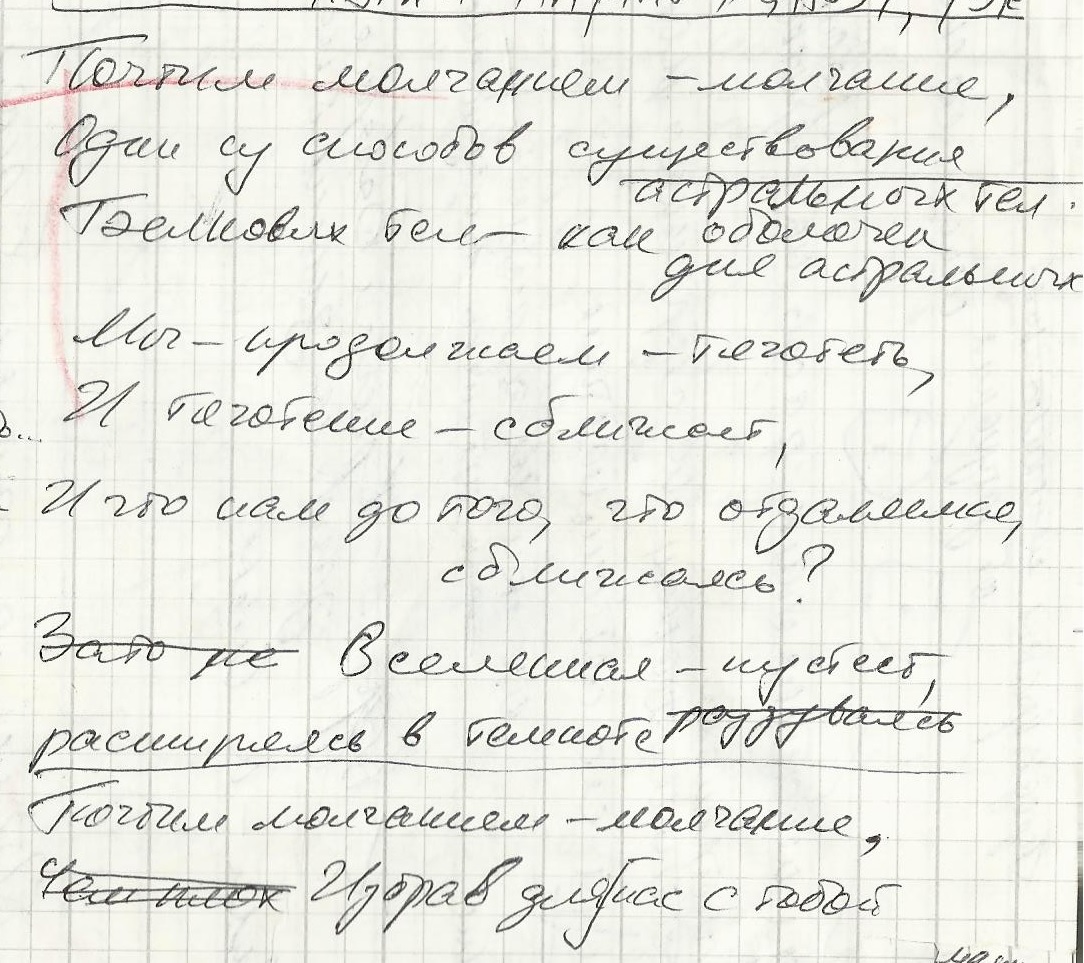 Почтим молчанием – молчание,
Один из способов существования
астральных тел.
Белковых тел – как оболочек
для астральных
Мы – продолжаем – тяготеть,
И тяготение – сближает,
И что нам до того, что отдаляемся,
сближаясь?
Зато не Вселенная – пустеет,
расширяясь в темноте раздуваясь
Почтим молчанием – молчание,
Чем плох Избрав для нас с тобой